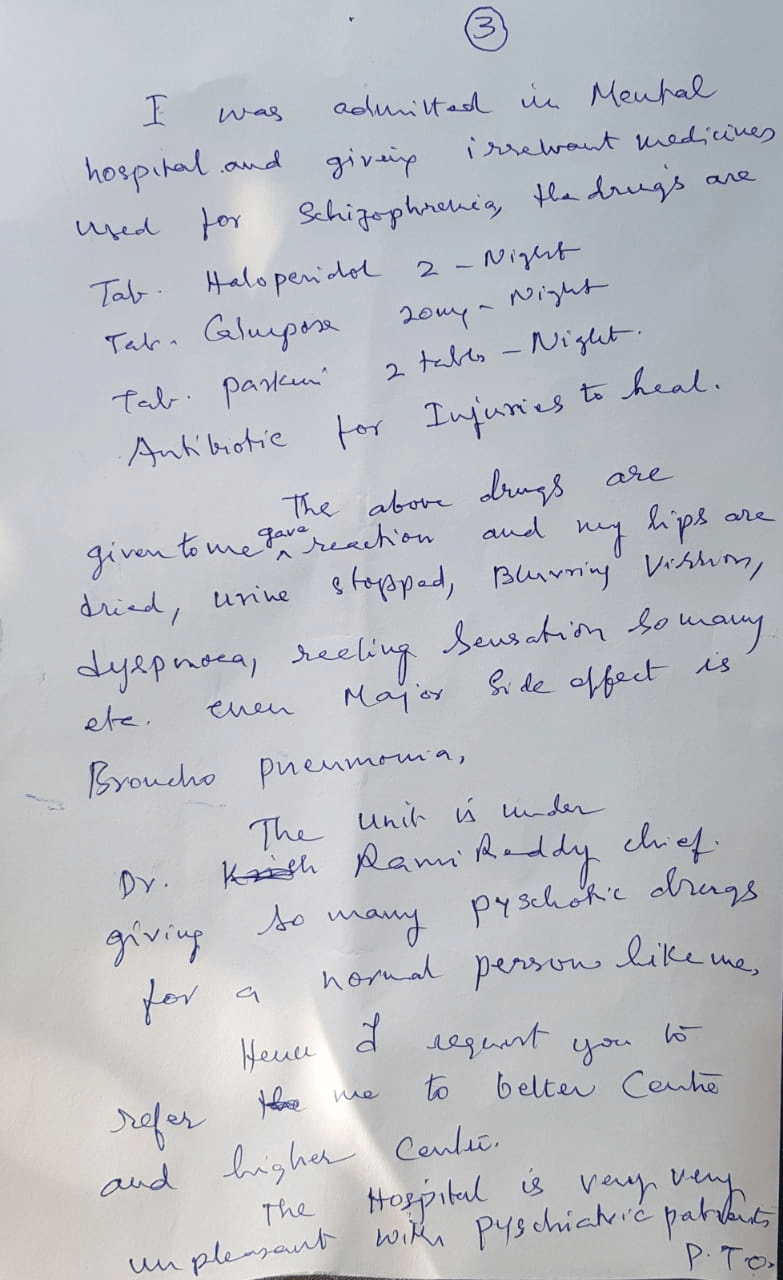 3
I was admitted in Mental
hospital and giving irrelvant medicines
used for Schizophrenia, the drugs are
Tab. Haloperidol 2 - Night
Tab. Calmpose 20mg - Night
Tab. parkin 2 tabls - Night.
Antibiotic for Injuries to heal.
The above drugs are
given to me gave reaction and my lips are
dried, urine stopped, Blurring Vission,
dyspnoea, reeling sensation so many
etc. even Major Side effect is
Broncho pneumonia,
The unit is under
Dr. Rami Reddy chief.
giving so many pyschotic drugs
for a normal person like me,
Hence I request you to
refer me to better Centre
and higher Centre.
The Hospital is very very
unpleasant with pyschiatric patients
P.T.O.